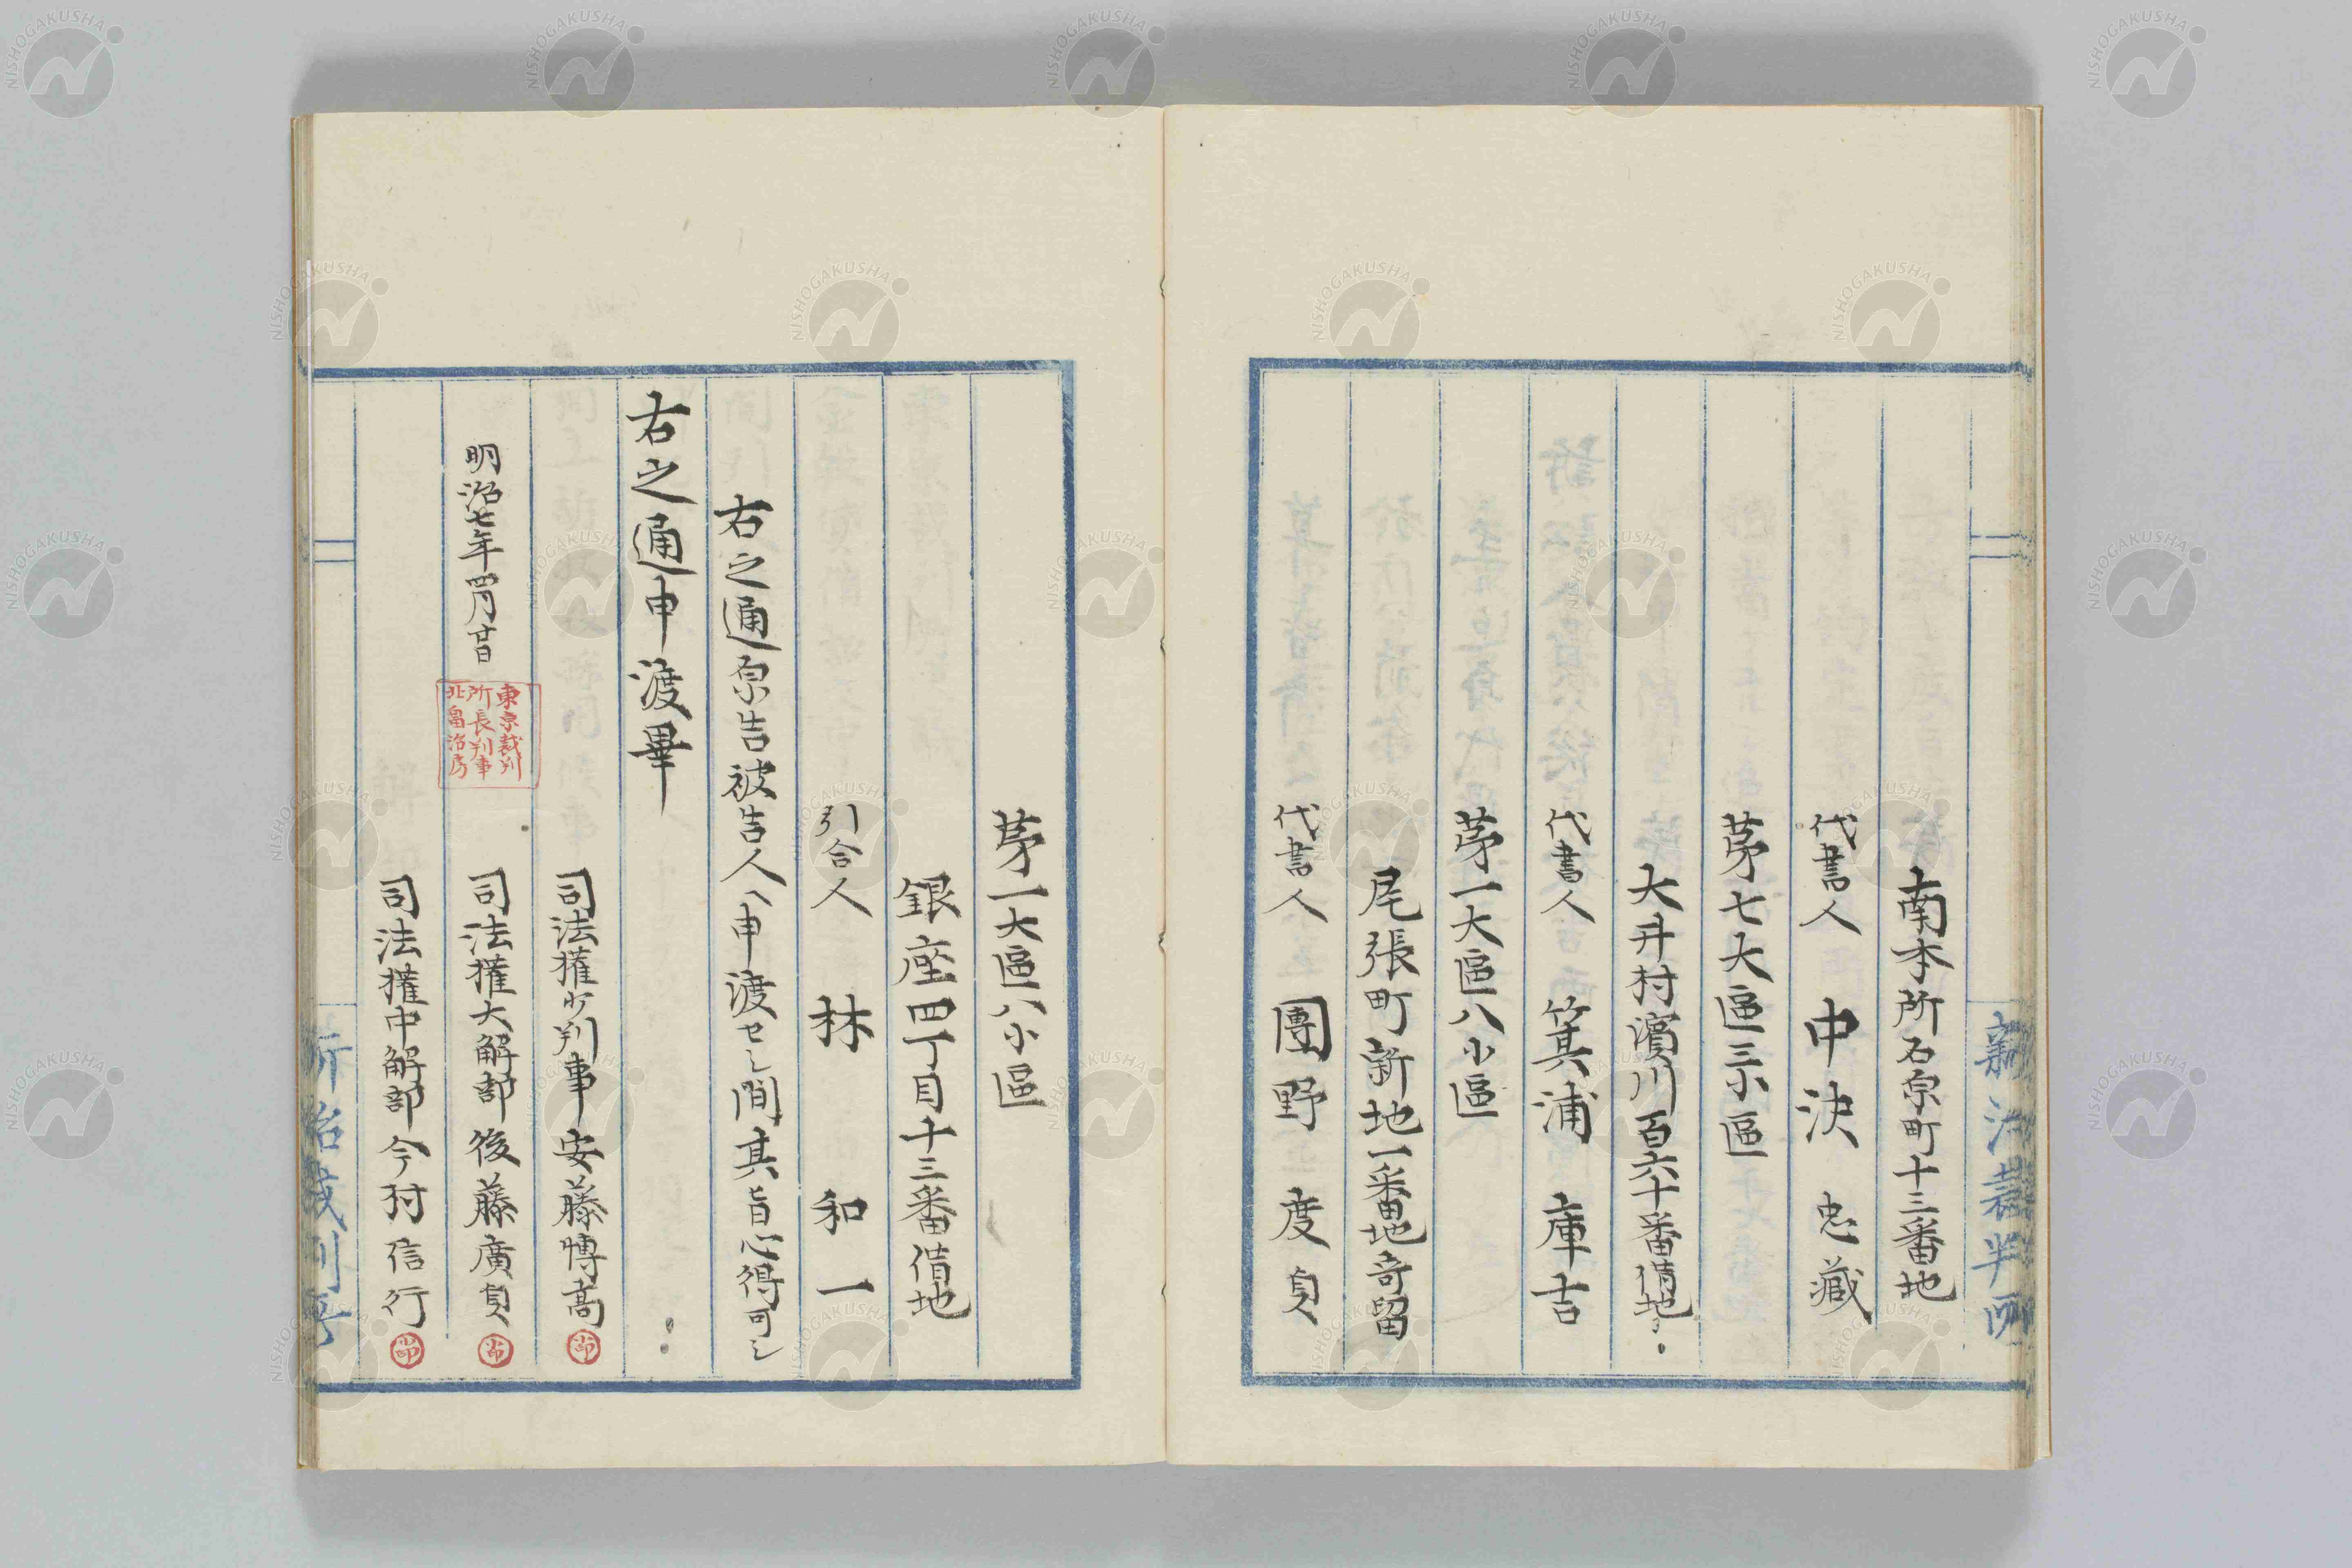 南本所石原町十三番地
代書人 中決忠藏
茅七大區三小區
大井村濱川百六十番借地
代書人 箕浦庫吉
茅一大區八小區
尾張町新地一番地寄留
代書人 團野度貞
茅一大區八小區
銀座四丁目十三番借地
引合人 林和一
右之通原告被告人ヘ申渡セシ間其旨心得可シ
右之通申渡畢
司法権少判事 安藤博高
明治七年四月廿日
東京裁判
所長判事
北畠治房
司法権大解部 後藤廣貞
司法権中解部 今村信行
NISHOGAKUSHA